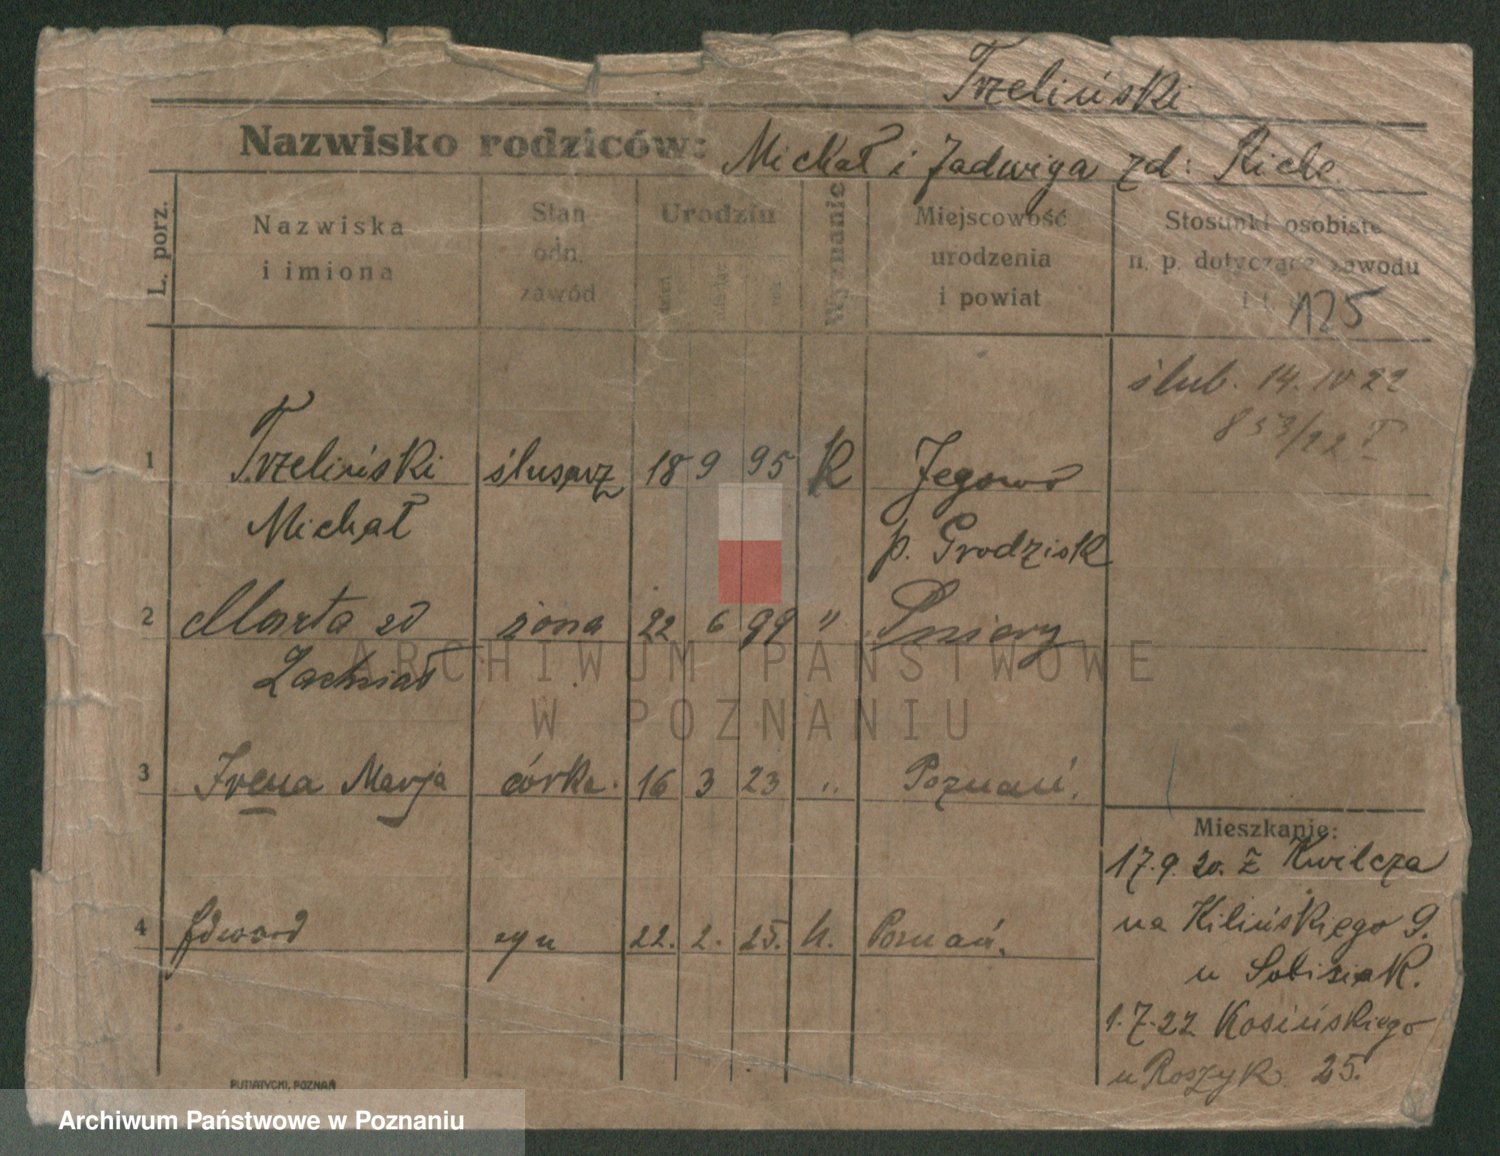 Trzeliński
Nazwisko rodziców: Michał i Jadwiga zd: Riche.
L. porz.
Nazwiska
i imiona
Stan
odn.
zawód
Urodzin
Wyznanie
Miejscowość
urodzenia
i powiat
Stosunki osobiste
n. p. dotyczące zawodu
i t.
125
ślub. 14. IV 22
853/22 I
1 Trzeliński ślusarz 18 9 95 K Jegowo
Michał p. Grodzisk
2 Marta zd żona 22 6 99 " Pniewy
Zachciał
3 Irena Marja córka. 16 3 23 " Poznań.
Mieszkanie:
17.9.20. z Kwilcza
na Kilińskiego 9.
u Sobisiak.
1.7.22 Kosińskiego
u Roszyk 25.
4 Edward syn 22. 2. 25. k. Poznań.
PUTIATYCKI, POZNAŃ
ARCHIWUM PAŃSTWOWE
W POZNANIU
Archiwum Państwowe w Poznaniu